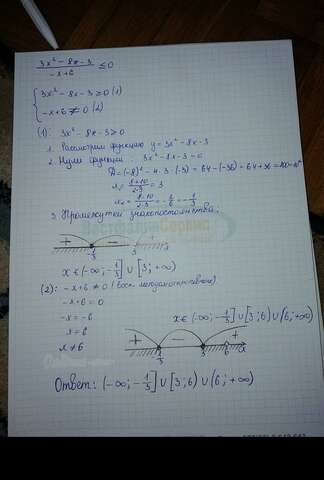 3x² − 8x − 3 / −x + 6 ≤ 0
3x² − 8x − 3 ≥ 0 (1)
−x + 6 ≠ 0 (2)
(1): 3x² − 8x − 3 ≥ 0
1. Рассмотрим функцию y = 3x² − 8x − 3
2. Нули функции: 3x² − 8x − 3 = 0
D = (−8)² − 4 · 3 · (−3) = 64 − (−36) = 64 + 36 = 100 = 10²
x₁ = 8+10 / 2·3 = 3
x₂ = 8−10 / 2·3 = −2/6 = −1/3
3. Промежутки знакопостоянства.
+ − +
−1/3 3
x ∈ (−∞; −1/3] ∪ [3; +∞)
(2): −x + 6 ≠ 0
−x + 6 = 0
−x = −6
x = 6
x ≠ 6
x ∈ (−∞; −1/3] ∪ [3; 6) ∪ (6; +∞)
+ − +
−1/3 3 6 x
Ответ: (−∞; −1/3] ∪ [3; 6) ∪ (6; +∞)